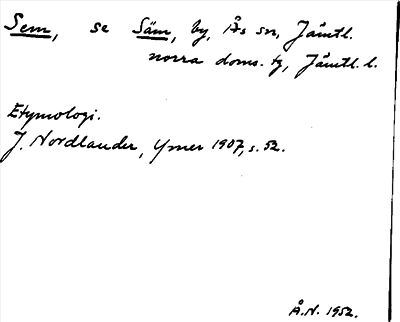 Sem, se Säm, by, Ås sn, Jämtl.
norra doms. tg, Jämtl. l.
Etymologi.
J. Nordlander, Ymer 1907, s. 52.
Å.N. 1952.